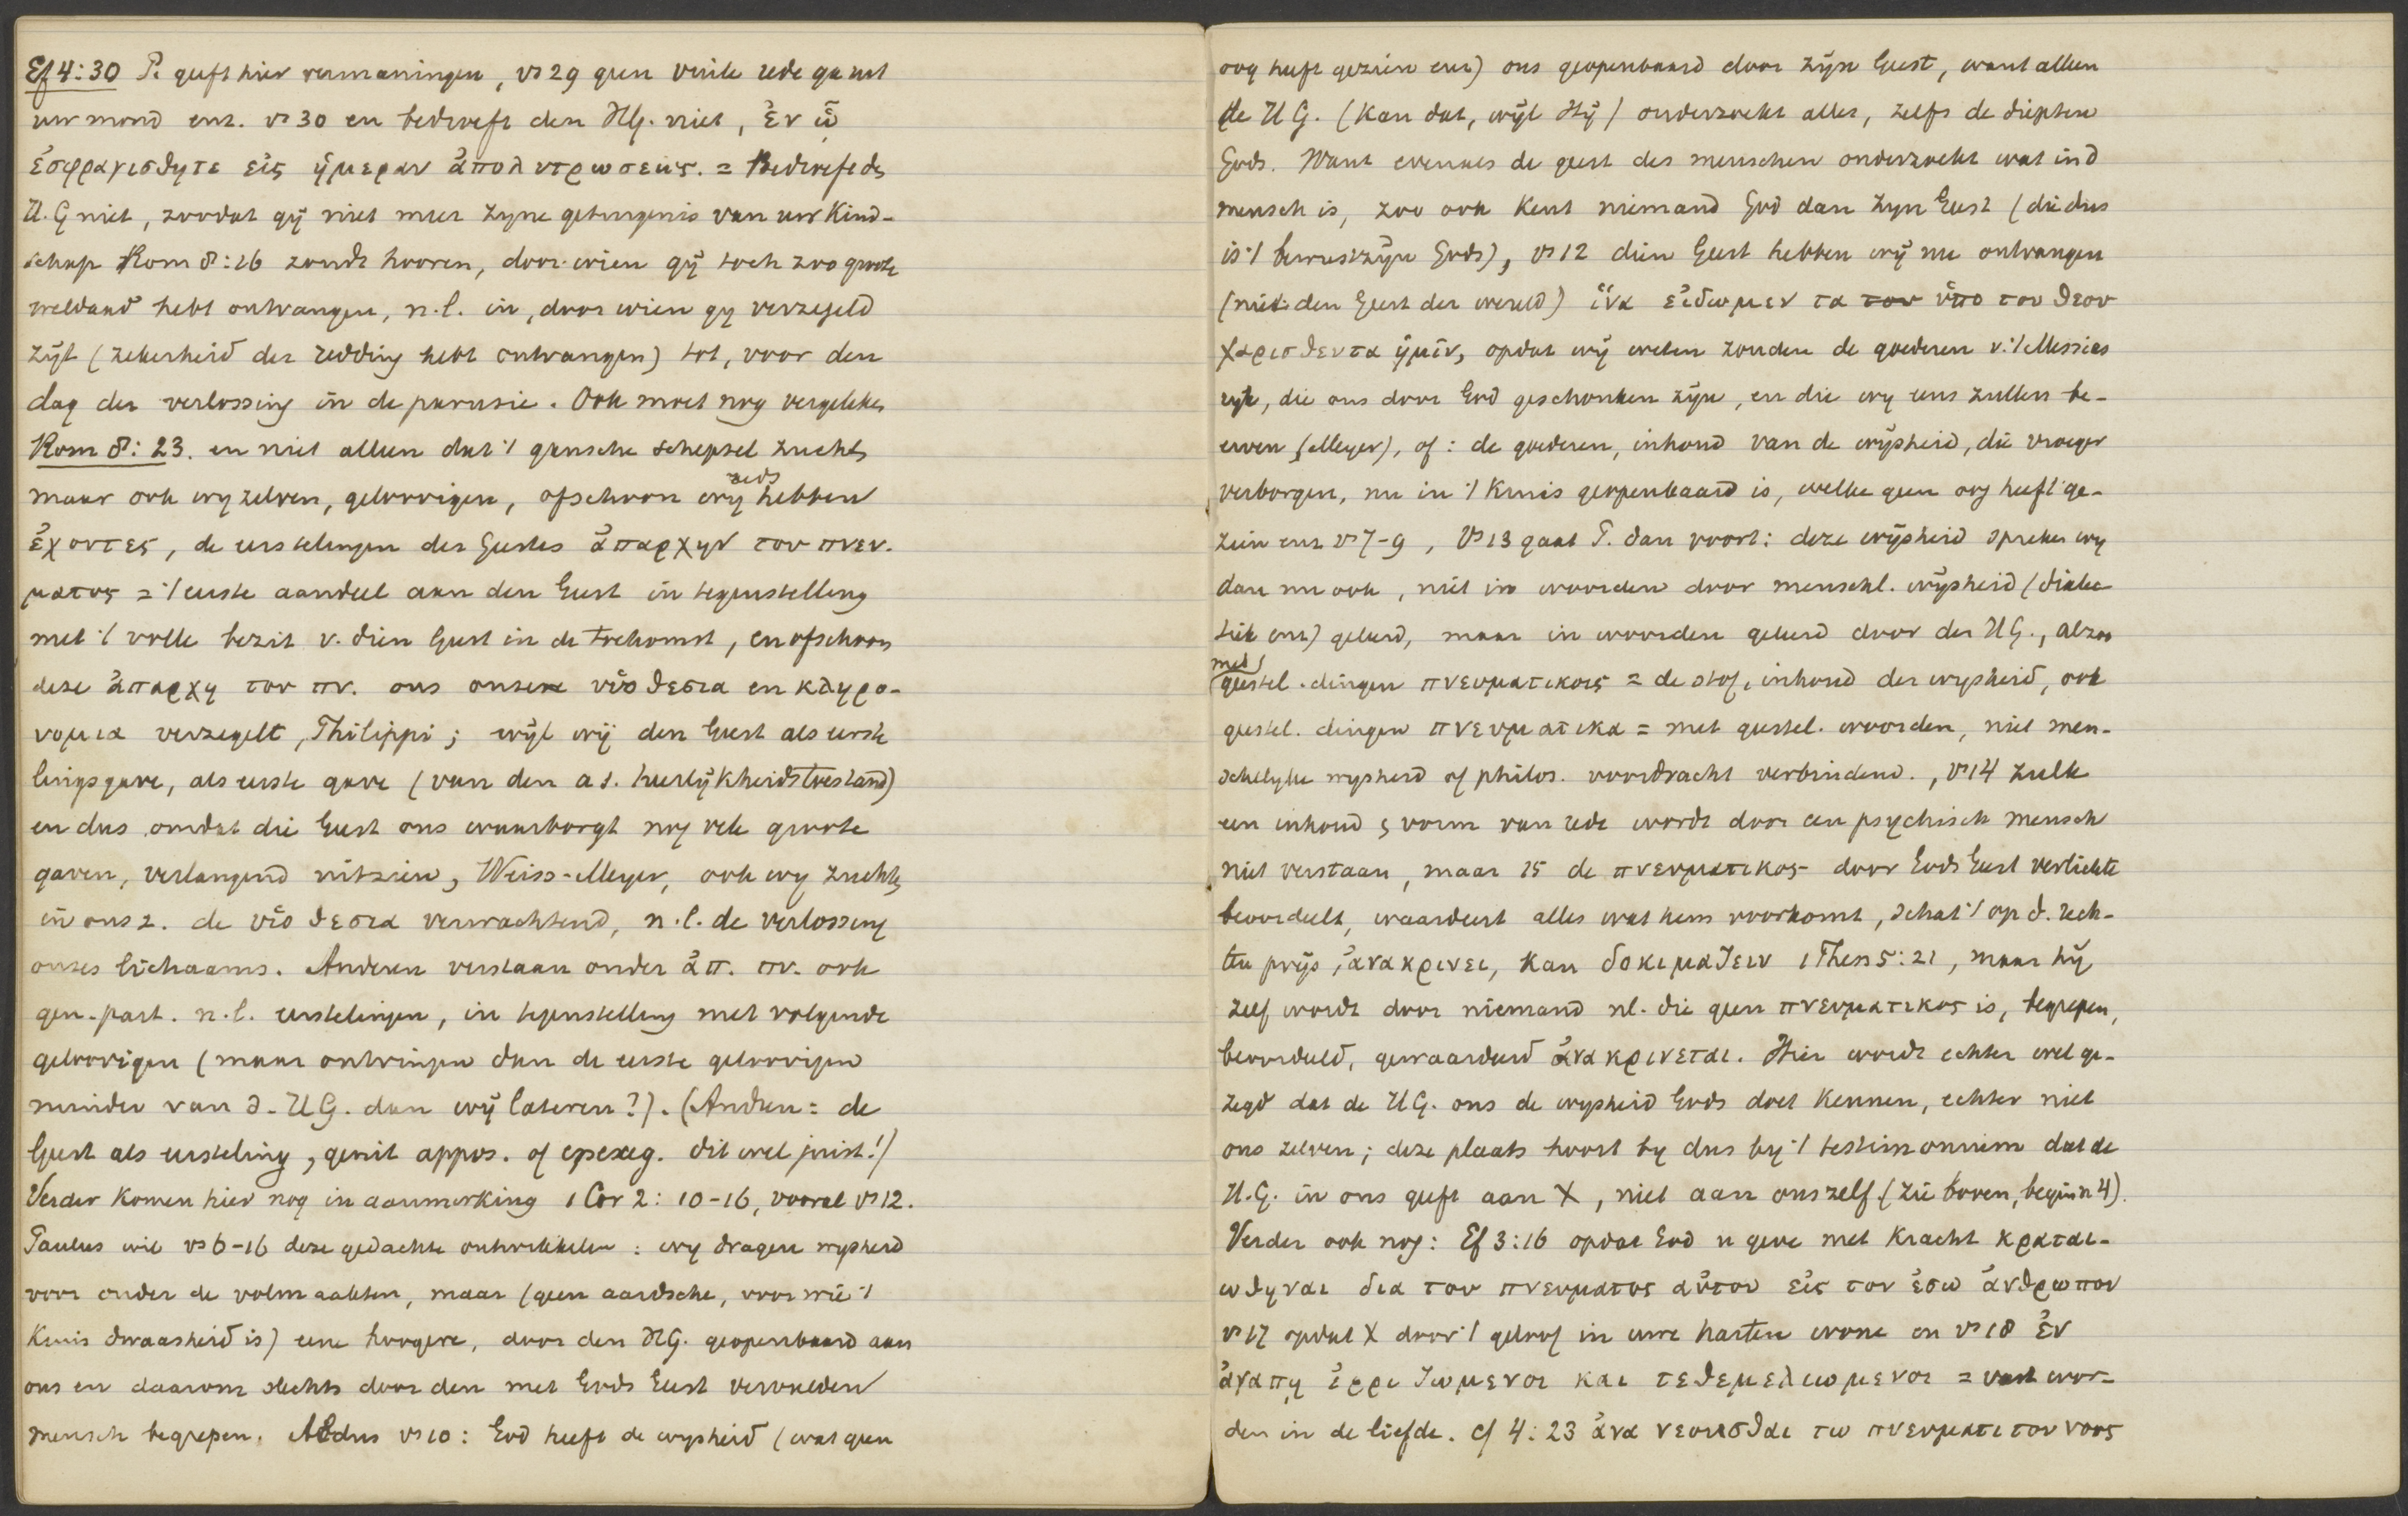 Ef 4:30 P. geeft hier vermaningen, vs 29 geen vuile rede ga uit
uw mond enz. vs 30 en bedroeft den HG. niet, ἐν ᾧ
ἐσφραγισθητε εἰς ἡμεραν ἀπολυτρωσεως. = Bedroeft de
H.G niet, zoodat gij niet meer zyne getuigenis van uw Kind-
schap Rom 8:16 zoudt hooren, door wien gij toch zoo groote
weldaad hebt ontvangen, n.l. in, door wien gy verzegeld
zijt (zekerheid der redding hebt ontvangen) tot, voor den
dag der verlossing in de parusie. Ook moet nog vergeleken
Rom 8:23. en niet alleen dat 't gansche schepsel zucht,
maar ook wy zelven, geloovigen, ofschoon wij reeds hebben
ἐχοντες, de eerstelingen des Geestes ἀπαρχην του πνευ.
ματος = 't eerste aandeel aan den Geest in tegenstelling
met 't volle bezit v. dien Geest in de toekomst, en ofschoon
deze ἀπαρχη του πν. ons onzen υἱοθεσια en κληρο-
νομια verzegelt, Philippi; wijl wij den Geest als eerste
lingsgave, als eerste gave (van den a.s. heerlijkheidstoestand)
en dus omdat die Geest ons waarborgt nog vele groote
gaven, verlangend uitzien, Weiss-Meyer, ook wy zuchten
in ons z. de υἱοθεσια verwachtend, n.l. de verlossing
onzes lichaams. Anderen verstaan onder ἀπ. πν. ook
gen. part. n.l. eerstelingen, in tegenstelling met volgende
geloovigen (maar ontvingen dan de eerste geloovigen
minder van d. HG. dan wij lateren?). (Anderen = de
Geest als eersteling, genit appos. of epexeg. dit wel juist!)
Verder komen hier nog in aanmerking 1 Cor 2:10-16, vooral vs 12.
Paulus wil vs 6-16 deze gedachte ontwikkelen: wy dragen wysheid
voor onder de volmaakten, maar (geen aardsche, voor wie 't
Kruis dwaasheid is) eene hoogere, door den HG. geopenbaard aan
ons en daarom slechts door den met Gods Geest vervulden
mensch begrepen. Aldus vs 10: God heeft de wysheid (wat geen
oog heeft gezien enz) ons geopenbaard door zijn Geest, want alleen
de HG. (kan dat, wijl Hij) onderzoekt alles, zelfs de diepten
Gods. Want evenals de geest des menschen onderzoekt wat in d
mensch is, zoo ook kent niemand God dan zyn Geest (die dus
is 't bewustzijn Gods), vs 12 dien Geest hebben wij nu ontvangen
(niet den Geest der wereld) ἱνα εἰδωμεν τα του ὑπο του θεου
χαρισθεντα ἡμιν, opdat wij weten zouden de goederen v. 't Messias
ryk, die ons door God geschonken zijn, en die wy eens zullen be-
erven (Meyer), of: de goederen, inhoud van de wijsheid, die vroeger
verborgen, nu in 't Kruis geopenbaard is, welke geen oog heeft ge-
zien enz vs 7-9, Vs 13 gaat P. dan voort: deze wijsheid spreken wy
dan nu ook, niet in woorden door menschl. wijsheid (dialec
tiek enz) geleerd, maar in woorden geleerd door den HG., alzoo
met
geestel. dingen πνευματικοις = de stof, inhoud der wysheid, ook
geestel. dingen πνευματικα = met geestel. woorden, niet men-
schelyke wysheid of philos. voordracht verbindend., vs 14 zulk
een inhoud & vorm van rede wordt door een psychisch mensch
niet verstaan, maar 15 de πνευματικος door Gods Geest verlichte
beoordeelt, waardeert alles wat hem voorkomt, schat 't op d. rech-
ten prijs, ἀνακρινει, kan δοκιμαζειν 1 Thess 5:21, maar hij
zelf wordt door niemand nl. die geen πνευματικος is, begrepen,
beoordeeld, gewaardeerd ἀνακρινεται. Hier wordt echter wel ge-
zegd dat de HG. ons de wysheid Gods doet kennen, echter niet
ons zelven; deze plaats hoort by dus bij 't testimonium dat de
H.G. in ons geeft aan X, niet aan onszelf. (zie boven, begin n 4).
Verder ook nog: Ef 3:16 opdat God u geve met kracht κραται-
ωθηναι δια του πνευματος αὐτου εἰς τον ἐσω ἀνθρωπον
vs 17 opdat X door 't geloof in uwe harten wone en vs 18 ἐν
ἀγαπῃ ἐρριζωμενοι και τεθεμελιωμενοι = vast wor-
den in de liefde. cf 4:23 ἀνανεουσθαι τω πνευματι του νοος